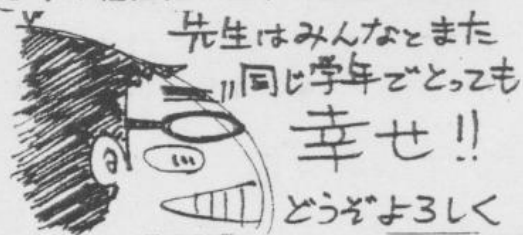 先生はみんなとまた
同じ学年でとっても
幸せ!!
どうぞよろしく